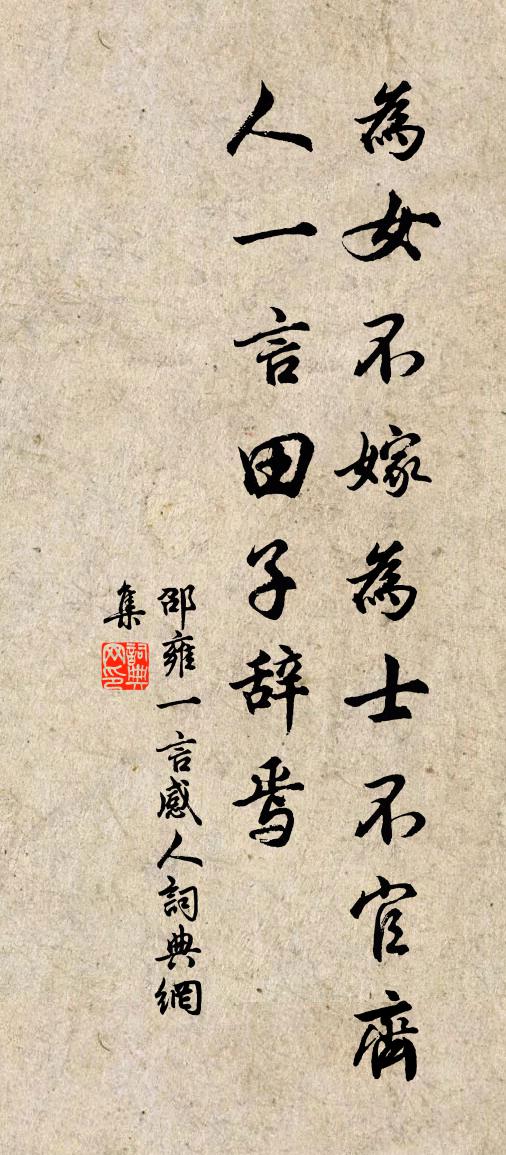 為女不嫁為士不官齊
人一言田子辞焉
邵雍一言感人詞典網
集
詞典
网印